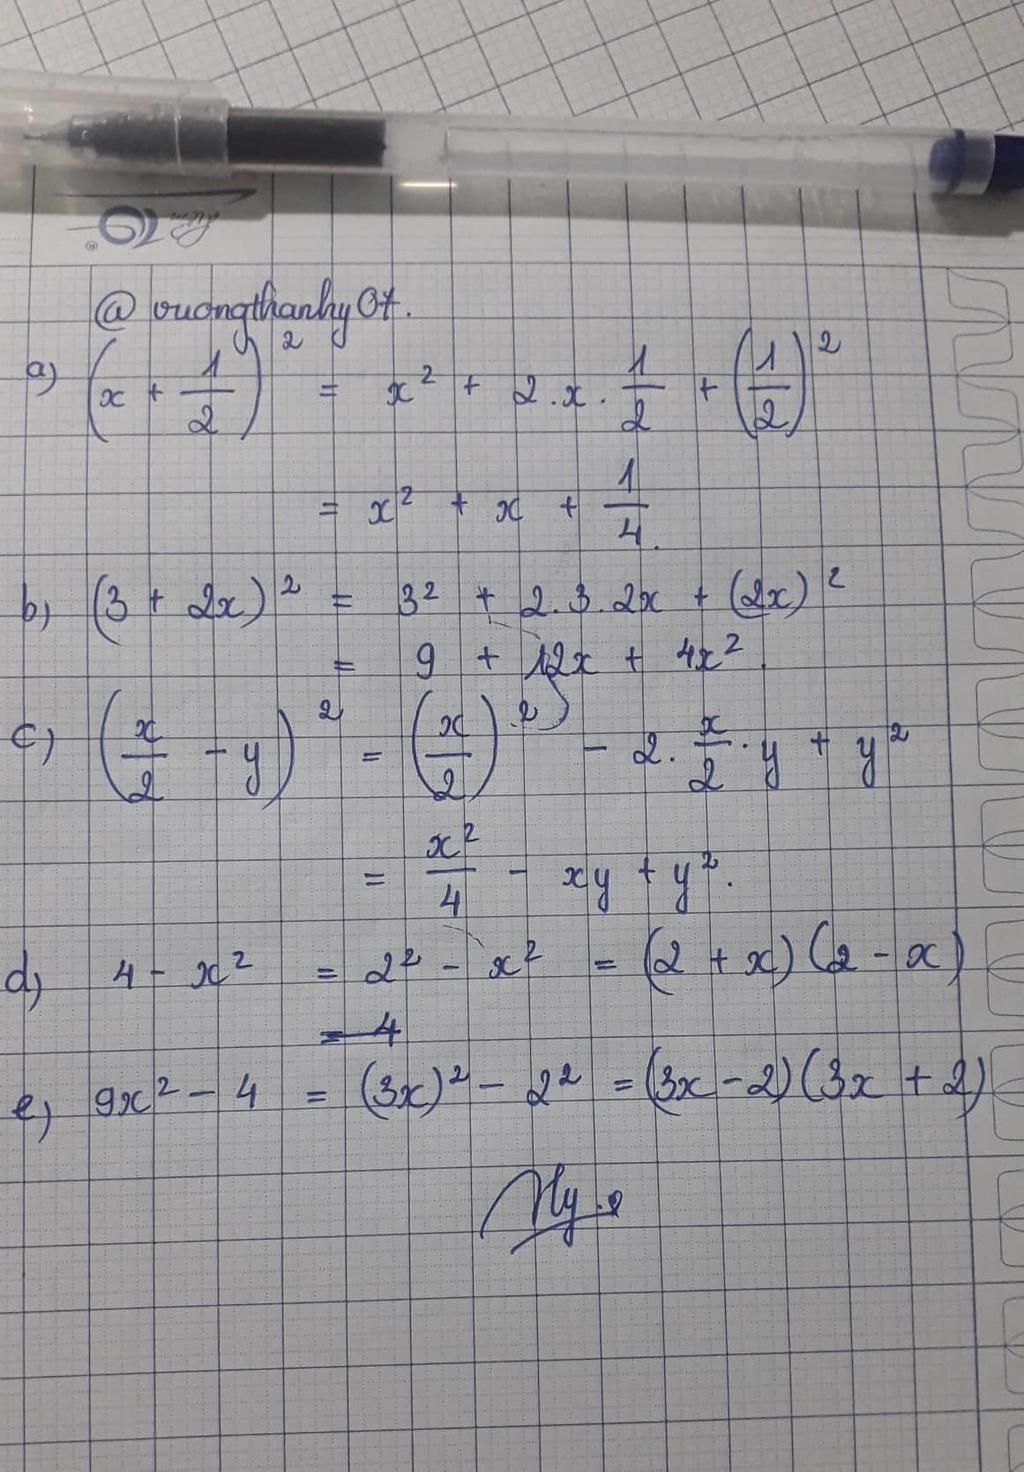 @ vuongthanhy07.
a) (x + 1/2)² = x² + 2.x.1/2 + (1/2)²
= x² + x + 1/4.
b) (3 + 2x)² = 3² + 2.3.2x + (2x)²
= 9 + 12x + 4x².
c) (x/2 - y)² = (x/2)² - 2.x/2.y + y²
= x²/4 - xy + y².
d) 4 - x² = 2² - x² = (2 + x)(2 - x)
= 4
e) 9x² - 4 = (3x)² - 2² = (3x - 2)(3x + 2)